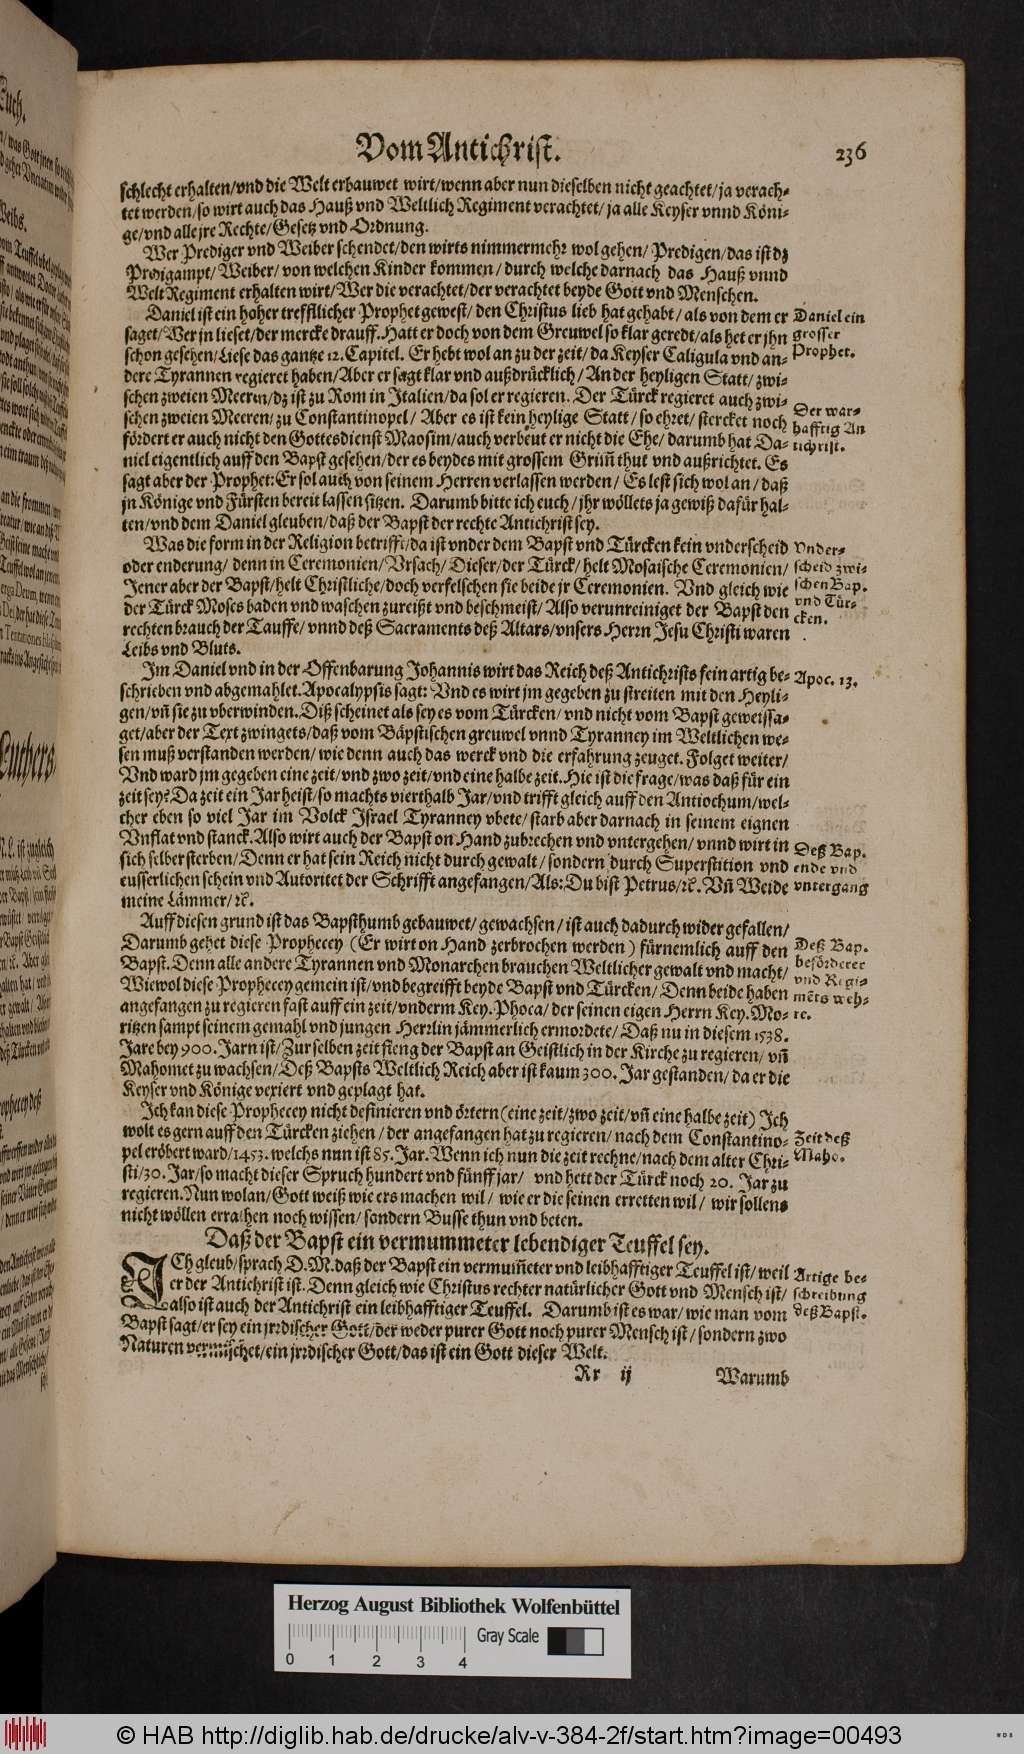 Vom Antichrist. 236
schlecht erhalten/vnd die Welt erbauwet wirt/wenn aber nun dieselben nicht geachtet/ja verach-
tet werden/so wirt auch das Hauß vnd Weltlich Regiment verachtet/ja alle Keyser vnnd Köni-
ge/vnd alle jre Rechte/Gesetz vnd Ordnung.
Wer Prediger vnd Weiber schendet/den wirts nimmermehr wol gehen/Predigen/das ist dz
Predigampt/Weiber/von welchen Kinder kommen/durch welche darnach das Hauß vnnd
Welt Regiment erhalten wirt/Wer die verachtet/der verachtet beyde Gott vnd Menschen.
Daniel ist ein hoher trefflicher Prophet gewest/den Christus lieb hat gehabt/als von dem er
saget/Wer jn lieset/der mercke drauff. Hatt er doch von dem Greuwel so klar geredt/als het er jhn
schon gesehen/Liese das gantze 12. Capitel. Er hebt wol an zu der zeit/da Keyser Caligula vnd an-
dere Tyrannen regieret haben/Aber er sagt klar vnd außdrücklich/An der heyligen Statt/zwi-
schen zweien Meeren/dz ist zu Rom in Italien/da sol er regieren. Der Türck regieret auch zwi-
schen zweien Meeren/zu Constantinopel/Aber es ist kein heylige Statt/so ehret/stercket noch
fördert er auch nicht den Gottesdienst Maosim/auch verbeut er nicht die Ehe/darumb hat Da-
niel eigentlich auff den Bapst gesehen/der es beydes mit grossem Grim̃ thut vnd außrichtet. Es
sagt aber der Prophet: Er sol auch von seinem Herren verlassen werden/Es lest sich wol an/daß
jn Könige vnd Fürsten bereit lassen sitzen. Darumb bitte ich euch/jhr wöllets ja gewiß dafür hal-
ten/vnd dem Daniel gleuben/daß der Bapst der rechte Antichrist sey.
Daniel ein
grosser
Prophet.
Der war-
hafftig An
tichrist.
Was die form in der Religion betrifft/da ist vnder dem Bapst vnd Türcken kein vnderscheid
oder enderung/denn in Ceremonien/Vrsach/Dieser/der Türck/helt Mosaische Ceremonien/
Jener aber der Bapst/helt Christliche/doch verfelschen sie beide jr Ceremonien. Vnd gleich wie
der Türck Moses baden vnd waschen zureißt vnd beschmeist/Also verunreiniget der Bapst den
rechten brauch der Tauffe/vnnd deß Sacraments deß Altars/vnsers Herrn Jesu Christi waren
Leibs vnd Bluts.
Vnder-
scheid zwi-
schen Bap.
vnd Tür-
cken.
Im Daniel vnd in der Offenbarung Johannis wirt das Reich deß Antichrists fein artig be-
schrieben vnd abgemahlet. Apocalypsis sagt: Vnd es wirt jm gegeben zu streiten mit den Heyli-
gen/vñ sie zu vberwinden. Diß scheinet als sey es vom Türcken/vnd nicht vom Bapst geweissa-
get/aber der Text zwingets/daß vom Bäpstischen greuwel vnnd Tyranney im Weltlichen we-
sen muß verstanden werden/wie denn auch das werck vnd die erfahrung zeuget. Folget weiter/
Vnd ward jm gegeben eine zeit/vnd zwo zeit/vnd eine halbe zeit. Hie ist die frage/was daß für ein
zeit sey? Da zeit ein Jar heist/so machts vierthalb Jar/vnd trifft gleich auff den Antiochum/wel-
cher eben so viel Jar im Volck Israel Tyranney vbete/starb aber darnach in seinem eignen
Vnflat vnd stanck. Also wirt auch der Bapst on Hand zubrechen vnd vntergehen/vnnd wirt in
sich selber sterben/Denn er hat sein Reich nicht durch gewalt/sondern durch Superstition vnd
eusserlichen schein vnd Autoritet der Schrifft angefangen/Als: Du bist Petrus/ꝛc. Vñ Weide
meine Lämmer/ꝛc.
Apoc. 13.
Deß Bap.
ende vnd
vntergang
Auff diesen grund ist das Bapsthumb gebauwet/gewachsen/ist auch dadurch wider gefallen/
Darumb gehet diese Prophecey (Er wirt on Hand zerbrochen werden) fürnemlich auff den
Bapst. Denn alle andere Tyrannen vnd Monarchen brauchen Weltlicher gewalt vnd macht/
Wiewol diese Prophecey gemein ist/vnd begreifft beyde Bapst vnd Türcken/Denn beide haben
angefangen zu regieren fast auff ein zeit/vnderm Key. Phoca/der seinen eigen Herrn Key. Mo-
ritzen sampt seinem gemahl vnd jungen Herrlin jämmerlich ermordete/Daß nu in diesem 1538.
Jare bey 900. Jarn ist/Zur selben zeit fieng der Bapst an Geistlich in der Kirche zu regieren/vñ
Mahomet zu wachsen/Deß Bapsts Weltlich Reich aber ist kaum 300. Jar gestanden/da er die
Keyser vnd Könige vexiert vnd geplagt hat.
Deß Bap.
beförderer
vnd Regi-
mẽts weh-
re.
Ich kan diese Prophecey nicht definieren vnd örtern (eine zeit/zwo zeit/vñ eine halbe zeit) Ich
wolt es gern auff den Türcken ziehen/der angefangen hat zu regieren/nach dem Constantino-
pel eröbert ward/1453. welchs nun ist 85. Jar. Wenn ich nun die zeit rechne/nach dem alter Chri-
sti/30. Jar/so macht dieser Spruch hundert vnd fünff jar/vnd hett der Türck noch 20. Jar zu
regieren. Nun wolan/Gott weiß wie ers machen wil/wie er die seinen erretten wil/wir sollens
nicht wöllen errathen noch wissen/sondern Busse thun vnd beten.
Zeit deß
Maho.
Daß der Bapst ein vermummeter lebendiger Teuffel sey.
ICh gleub/sprach D. M. daß der Bapst ein vermum̃eter vnd leibhafftiger Teuffel ist/weil
er der Antichrist ist. Denn gleich wie Christus rechter natürlicher Gott vnd Mensch ist/
also ist auch der Antichrist ein leibhafftiger Teuffel. Darumb ist es war/wie man vom
Bapst sagt/er sey ein jrrdischer Gott/der weder purer Gott noch purer Mensch ist/sondern zwo
Naturen vermischet/ein jrrdischer Gott/das ist ein Gott dieser Welt.
Artige be-
schreibung
deß Bapst.
Rr ij Warumb
Herzog August Bibliothek Wolfenbüttel
Gray Scale
0 1 2 3 4
© HAB http://diglib.hab.de/drucke/alv-v-384-2f/start.htm?image=00493